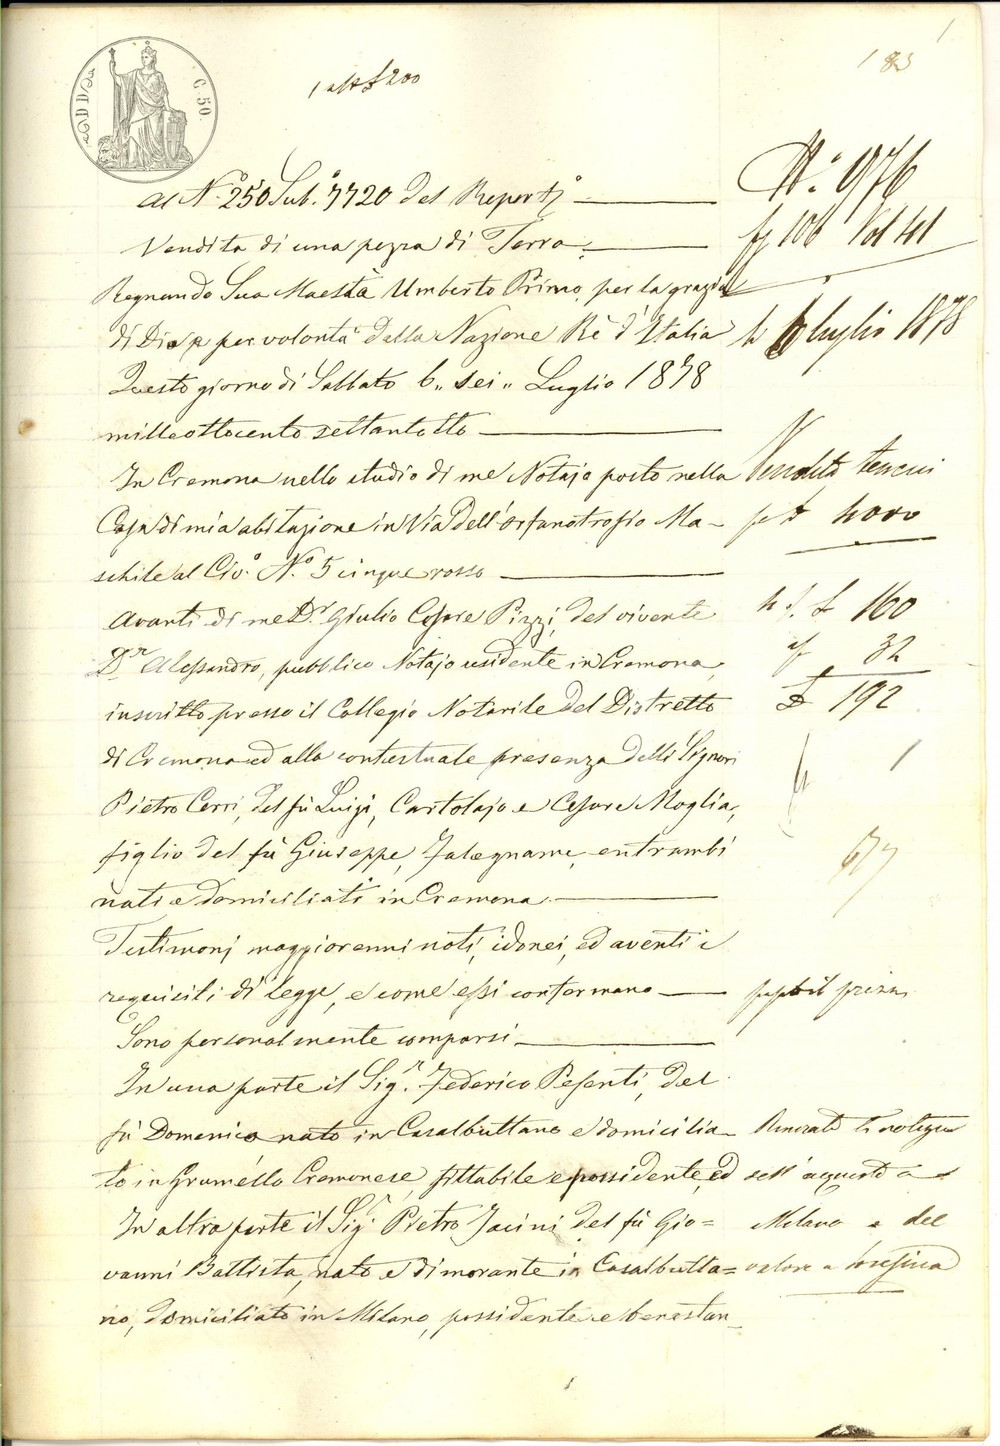 183
C. 50
Al N.° 250 Sub.° 7720 del Repert.°
N.° 976
Vendita di una pezza di Terra.
fg 106 Vol 41
Regnando Sua Maestà Umberto Primo per la grazia
di Dio e per volontà della Nazione Rè d'Italia
li 6 luglio 1878
Questo giorno di Sabbato 6,, sei,, Luglio 1878
milleottocento settantotto
In Cremona nello studio di me Notajo posto nella
Vendita terreni
Casa di mia abitazione in Via dell'orfanotrofio Ma-
per £ 4000
schile al Civ.° N.° 5 cinque rosso
Avanti di me D.r Giulio Cesare Pizzi, del vivente
£ 160
D.r Alessandro, pubblico Notajo residente in Cremona,
32
inscritto presso il Collegio Notarile del Distretto
£ 192
di Cremona ed alla contestuale presenza delli Signori
1
Pietro Cerri, del fù Luigi, Cartolajo e Cesare Moglia,
figlio del fù Giuseppe, Falegname, entrambi
677
nati e domiciliati in Cremona.
Testimonj maggiorenni noti, idonei, ed aventi i
requisiti di legge, e come essi confermano
Sono personalmente comparsi
In una parte il Sig.r Federico Pesenti, del
fù Domenico nato in Casalbuttano e domicilia-
to in Grumello Cremonese, fittabile e possidente, ed
sull'acquisto a
In altra parte il Sig.r Pietro Jacini del fù Gio=
Milano e del
vanni Battista, nato e dimorante in Casalbutta=
valore a
no, domiciliato in Milano, possidente e benestan-